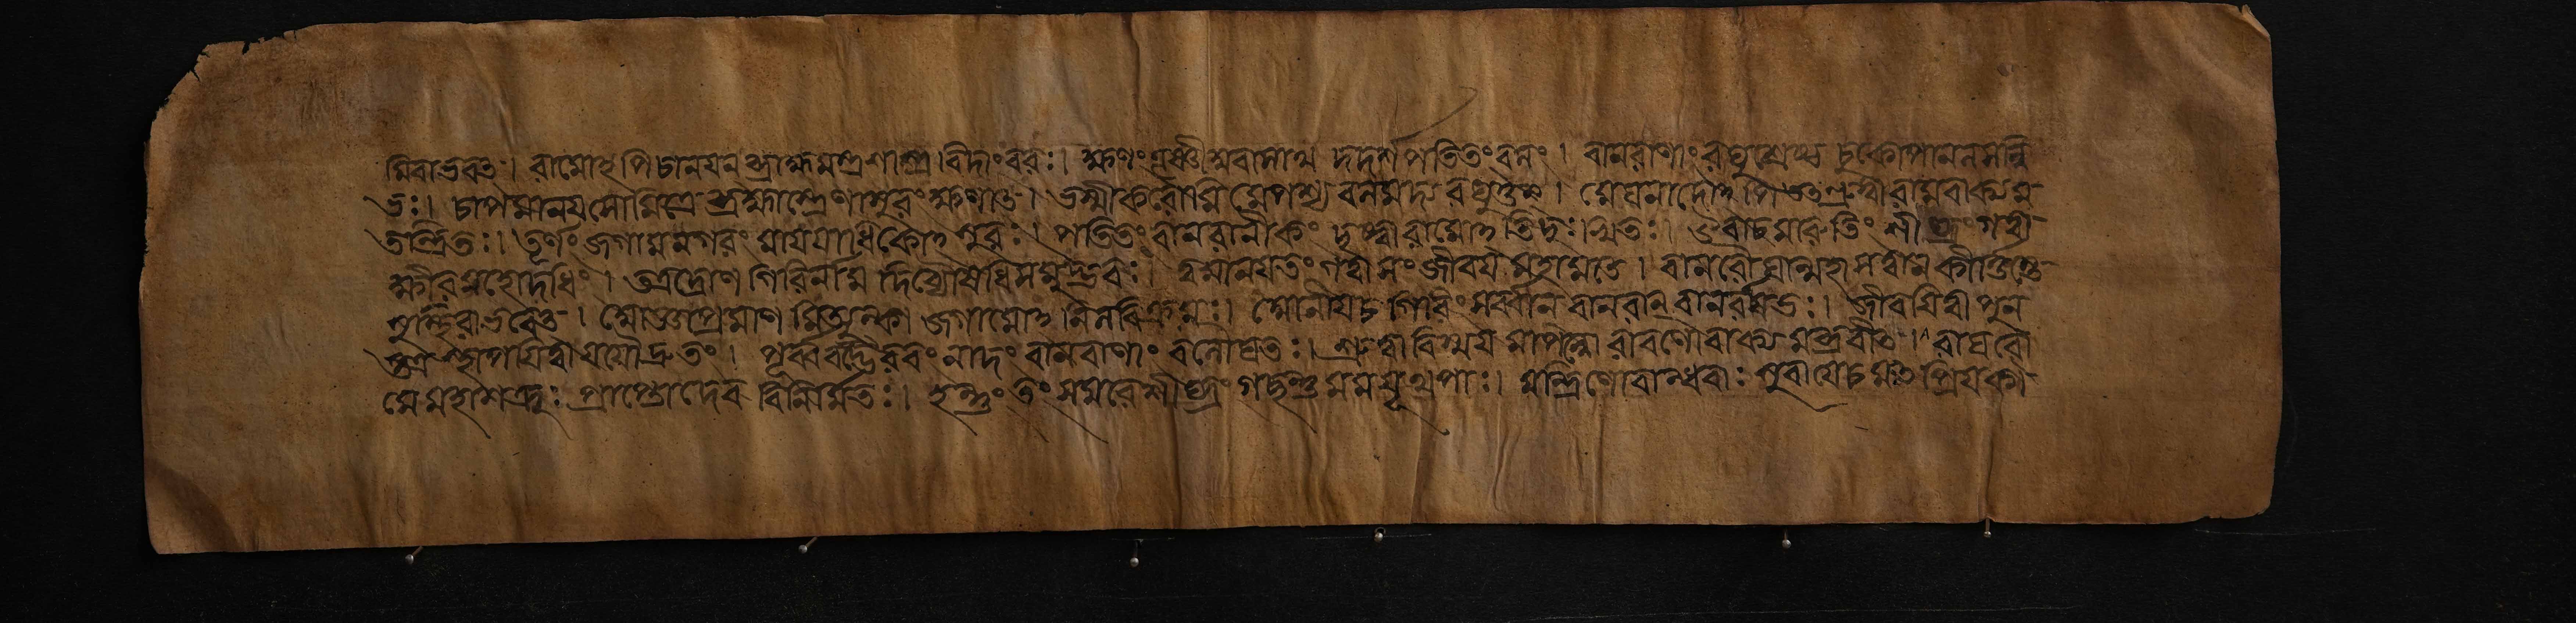 মিবাভবৎ। রামোহপি চানয়ন ব্রাহ্মমস্ত্রশাস্ত্রবিদাংবরঃ। ক্ষণং তূষ্ণীমুবাসাথ দদর্শ পতিতংবলং। বানরাণাং রঘুশ্রেষ্ঠ চুকোপানলসন্নি
ভঃ। চাপমানয় সৌমিত্রে ব্রহ্মাস্ত্রেণাসুরংক্ষণাৎ। ভস্মীকরোমি মেপশ্য বলমদ্য রঘূত্তম। মেঘনাদোপি তৎশ্রুত্বা রামবাক্যম
তন্দ্রিতঃ। তূর্ণং জগামনগরং মায়য়াধিকোসুরঃ। পতিতং বানরানীকং দৃষ্ট্বা রামোতিদুঃখিতঃ। উবাচ মারুতিং শীঘ্রং গত্বা
ক্ষীরমহোদধিং। তত্রদ্রোণগিরির্নাম দিব্যৌষধিসমুদ্ভবঃ। তমানয়তং গত্বা সংজীবয় মহামতে। বানরৌঘান্মহাসত্বান কীর্ত্তিস্তে
সুস্থিরাভবেৎ। আজ্ঞাপ্রমাণমিত্যুক্ত্বা জগামানিলবিক্রমঃ। আনীয়চ গিরিং সর্ব্বান বানরান্ বানরর্ষভঃ। জীবয়িত্বা পুন
স্তত্র স্থাপয়িত্বা যযৌদ্রুতং। পূর্ব্ববদ্ভৈরবং নাদং বানরাণাং বলৌঘতঃ। শ্রুত্বা বিস্ময়মাপন্নো রাবণোবাক্যমব্রবীৎ। রাঘবো
মেমহাশত্রুঃ প্রাপ্তোদেব বিনির্মিতঃ। হন্তুং তং সমরেশীঘ্রং গচ্ছন্তু মমযূথপাঃ। মন্ত্রিণোবান্ধবাঃ শূরাযেচমৎপ্রিয়কা